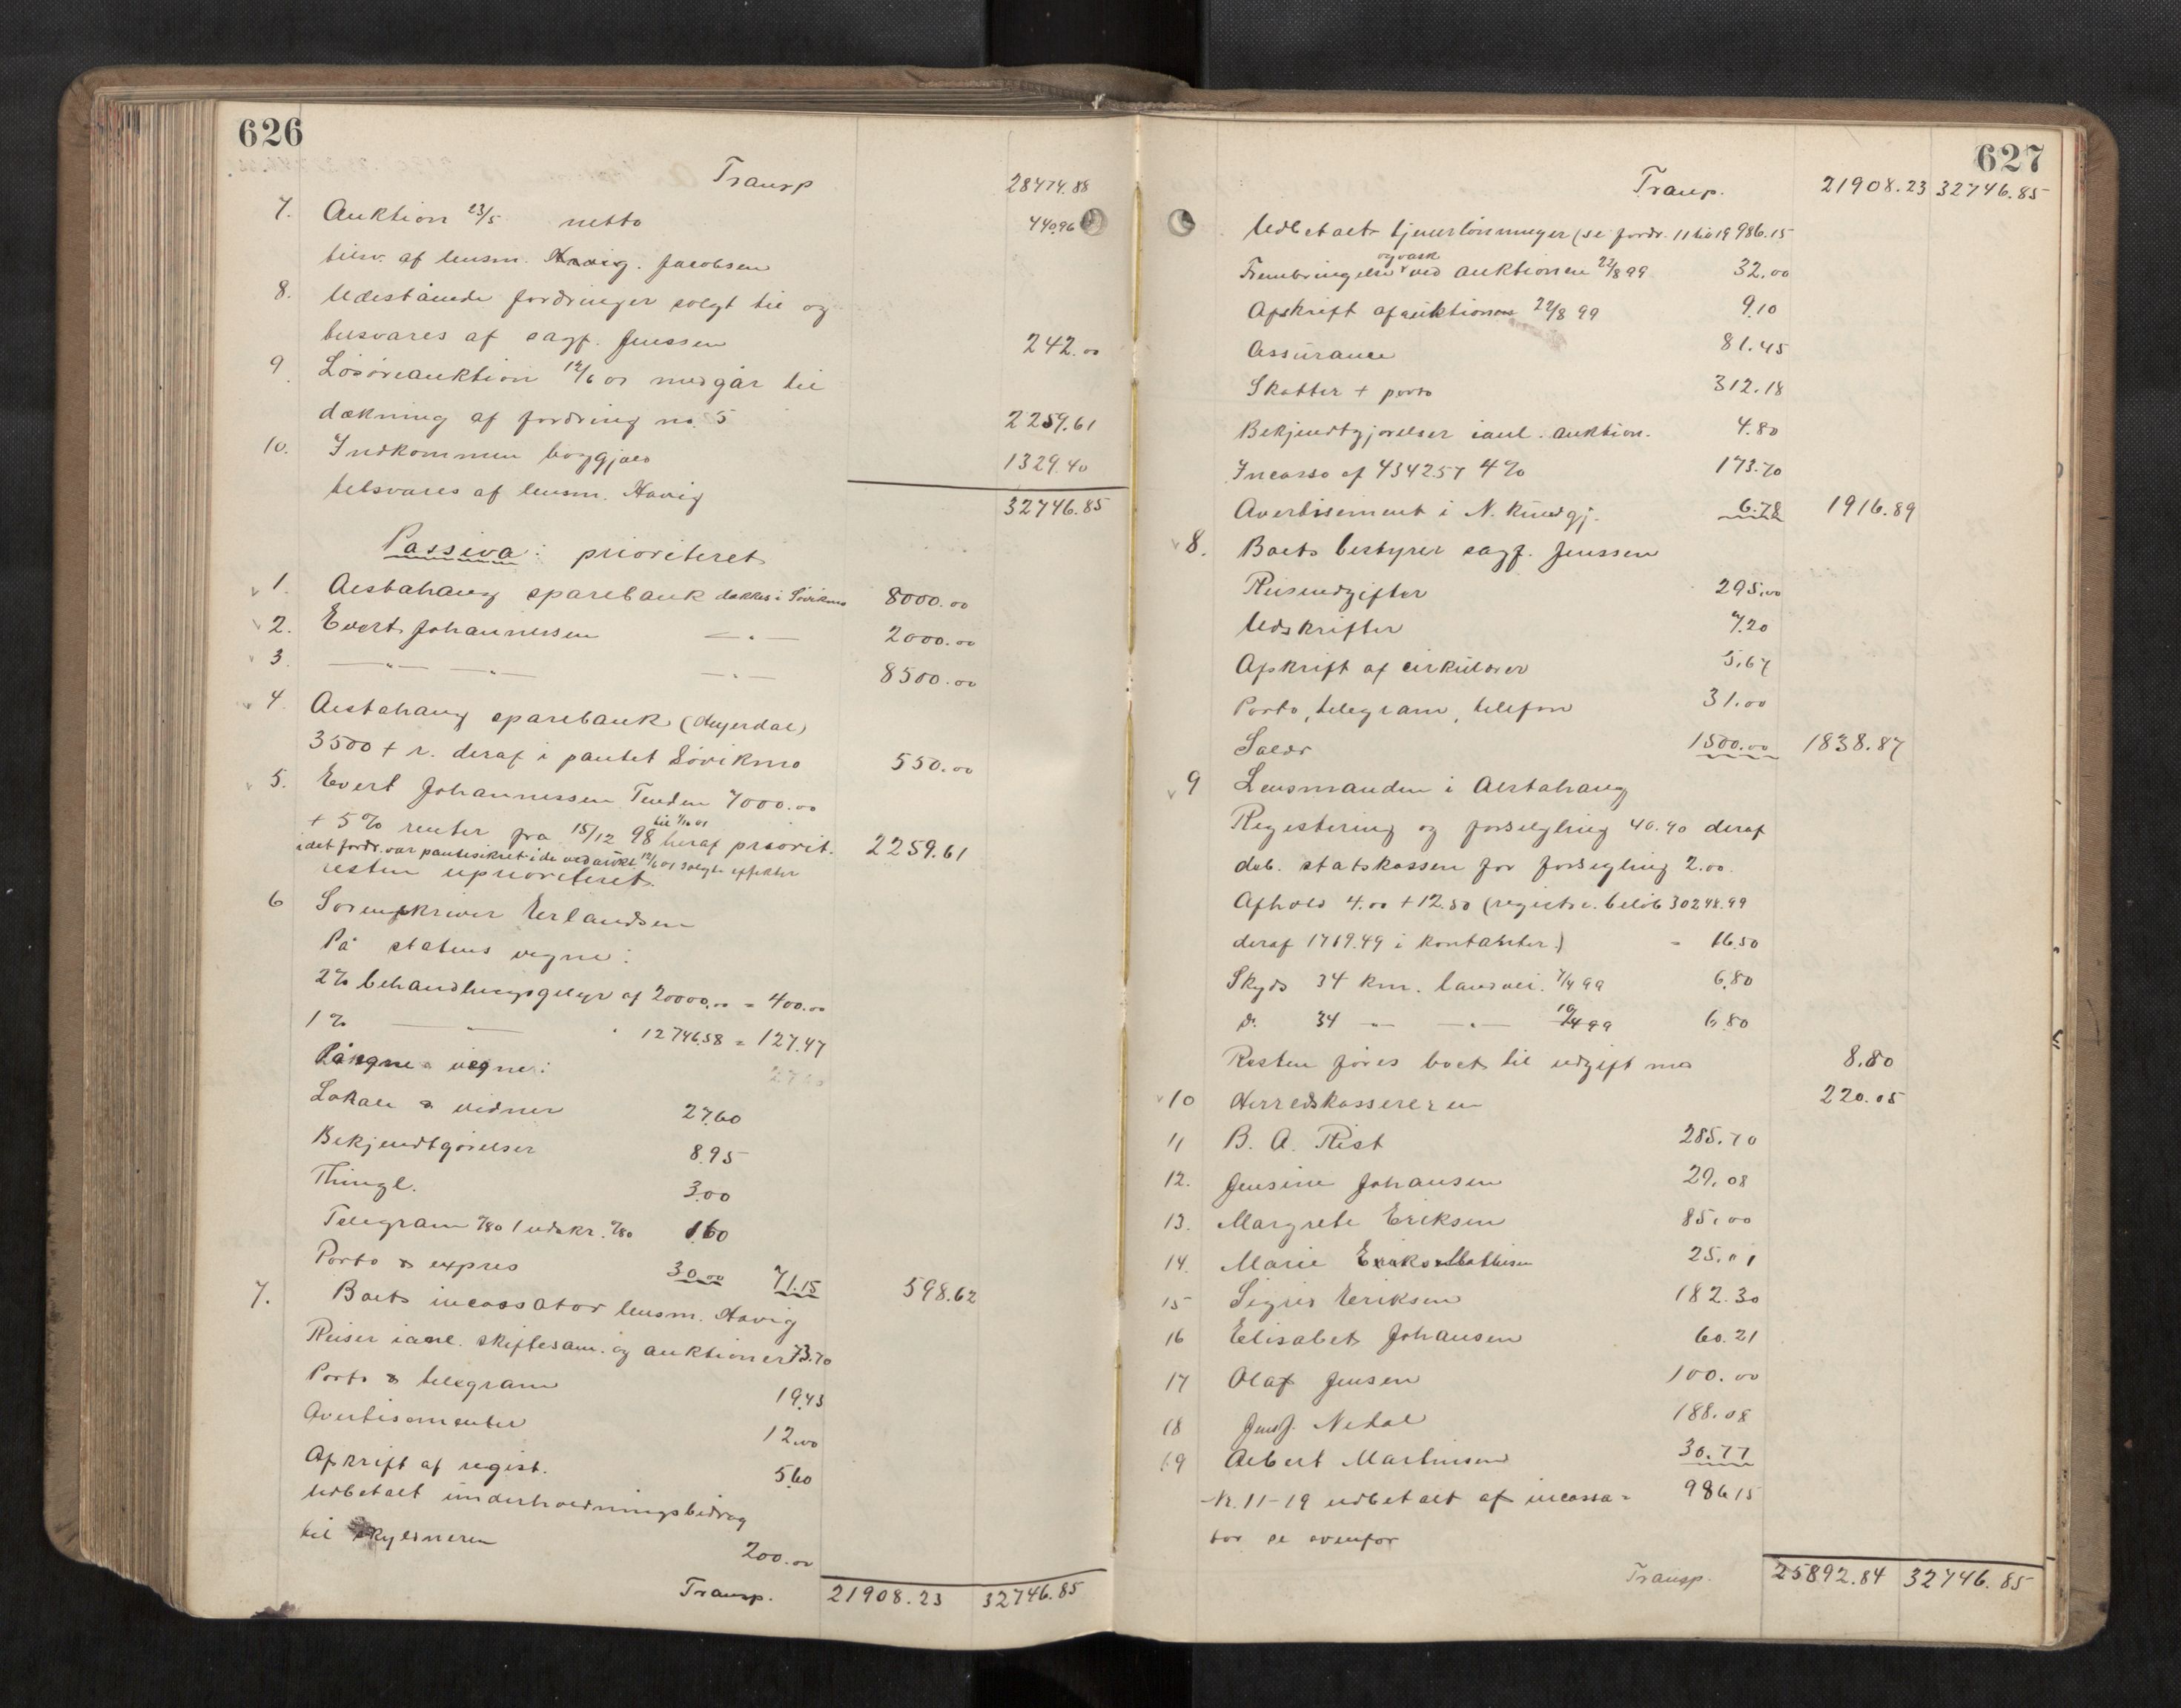 626
Transp 28474.88
7. Auktion 23/5 netto 440.96
tilsv. af lensm. Havig. Jacobsen
8. Udestående fordringer solgt til og
tilsvares af sagf. Jenssen 242.00
9. Løsøreauktion 12/6 01 medgår til
dækning af fordring no. 5 2259.61
10. Indkommen boggjæld 1329.40
tilsvares af lensm. Havig
32746.85
Passiva: prioriteret
1. Alstahaug sparebank dækkes i Søvikmo 8000.00
2. Evert Johannessen —"— 2000.00
3. —"— —"— —"— 8500.00
4. Alstahaug sparebank (Meyerdal)
3500 + r. deraf i pantet Søvikmo 550.00
5. Evert Johannessen Tenden 7000.00
+ 5% renter fra 15/12 98 til 1/10 01 heraf priorit. 2259.61
idet fordr. var pantesikret i de ved aukt 12/6 01 solgte effekter
resten uprioriteret.
6 Sorenskriver Erlandsen
På statens vegne:
2% behandlingsgebyr af 20000.00 = 400.00
1% —"— " 12746.58 = 127.47
På egne vegne:
Lokale & vidner 27.60
Bekjendtgørelser 8.95
Thingl. 3.00
Telegram /80 1 udskr. /80 1.60
Porto & expres 30.00 71.15 598.62
7. Boets incassator lensm. Havig
Reiser i anl. skiftesam. og auktioner 73.70
Porto & telegram 19.43
Avertisementer 12.00
Afskrift af regist. 5.60
Udbetalt underholdningsbidrag
til skyldneren 200.00
Transp. 21908.23 32746.85
627
Transp. 21908.23 32746.85
Udbetalt tjenerlønninger (se fordr. 11 til 19 986.15
Frembringelse og vask ved auktionen 22/8 99 32.00
Afskrift af auktionen 22/8 99 9.10
Assurance 81.45
Skatter + porto 312.18
Bekjendtgjørelser i anl. auktion. 4.80
Incasso af 4342.57 4% 173.70
Avertisement i N. Kundgj. 6.78 1916.89
8. Boets bestyrer sagf. Jenssen
Reiseudgifter 295.00
Udskrifter 7.20
Afskrift af cirkulærer 5.67
Porto, telegram, telefon 31.00
Salær 1500.00 1838.87
9 Lensmanden i Alstahaug
Registering og forseigling 40.40 deraf
deb. statskassen for forsegling 2.00.
Afhold 4.00 + 12.50 (registr. beløb 30248.99
deraf 1769.49 i kontanter.) = 16.50
Skyds 34 km. landvei. 7/4 99 6.80
d. 34 —"— —"— 10/4 99 6.80
Resten føres boet til udgift med 8.80
10 Herredskassereren 220.05
11 B. A. Rist 285.70
12. Jensine Johansen 29.08
13. Margrete Eriksen 85.00
14. Marie Mathisen 25.01
15 Sigrid Eriksen 182.30
16 Elisabet Johansen 60.21
17 Olaf Jensen 100.00
18 Jens J. Nedal 188.08
19 Albert Martinsen 30.77
Nr. 11-19 udbetalt af incassa= 986.15
tor se ovenfor
Transp. 25892.84 32746.85